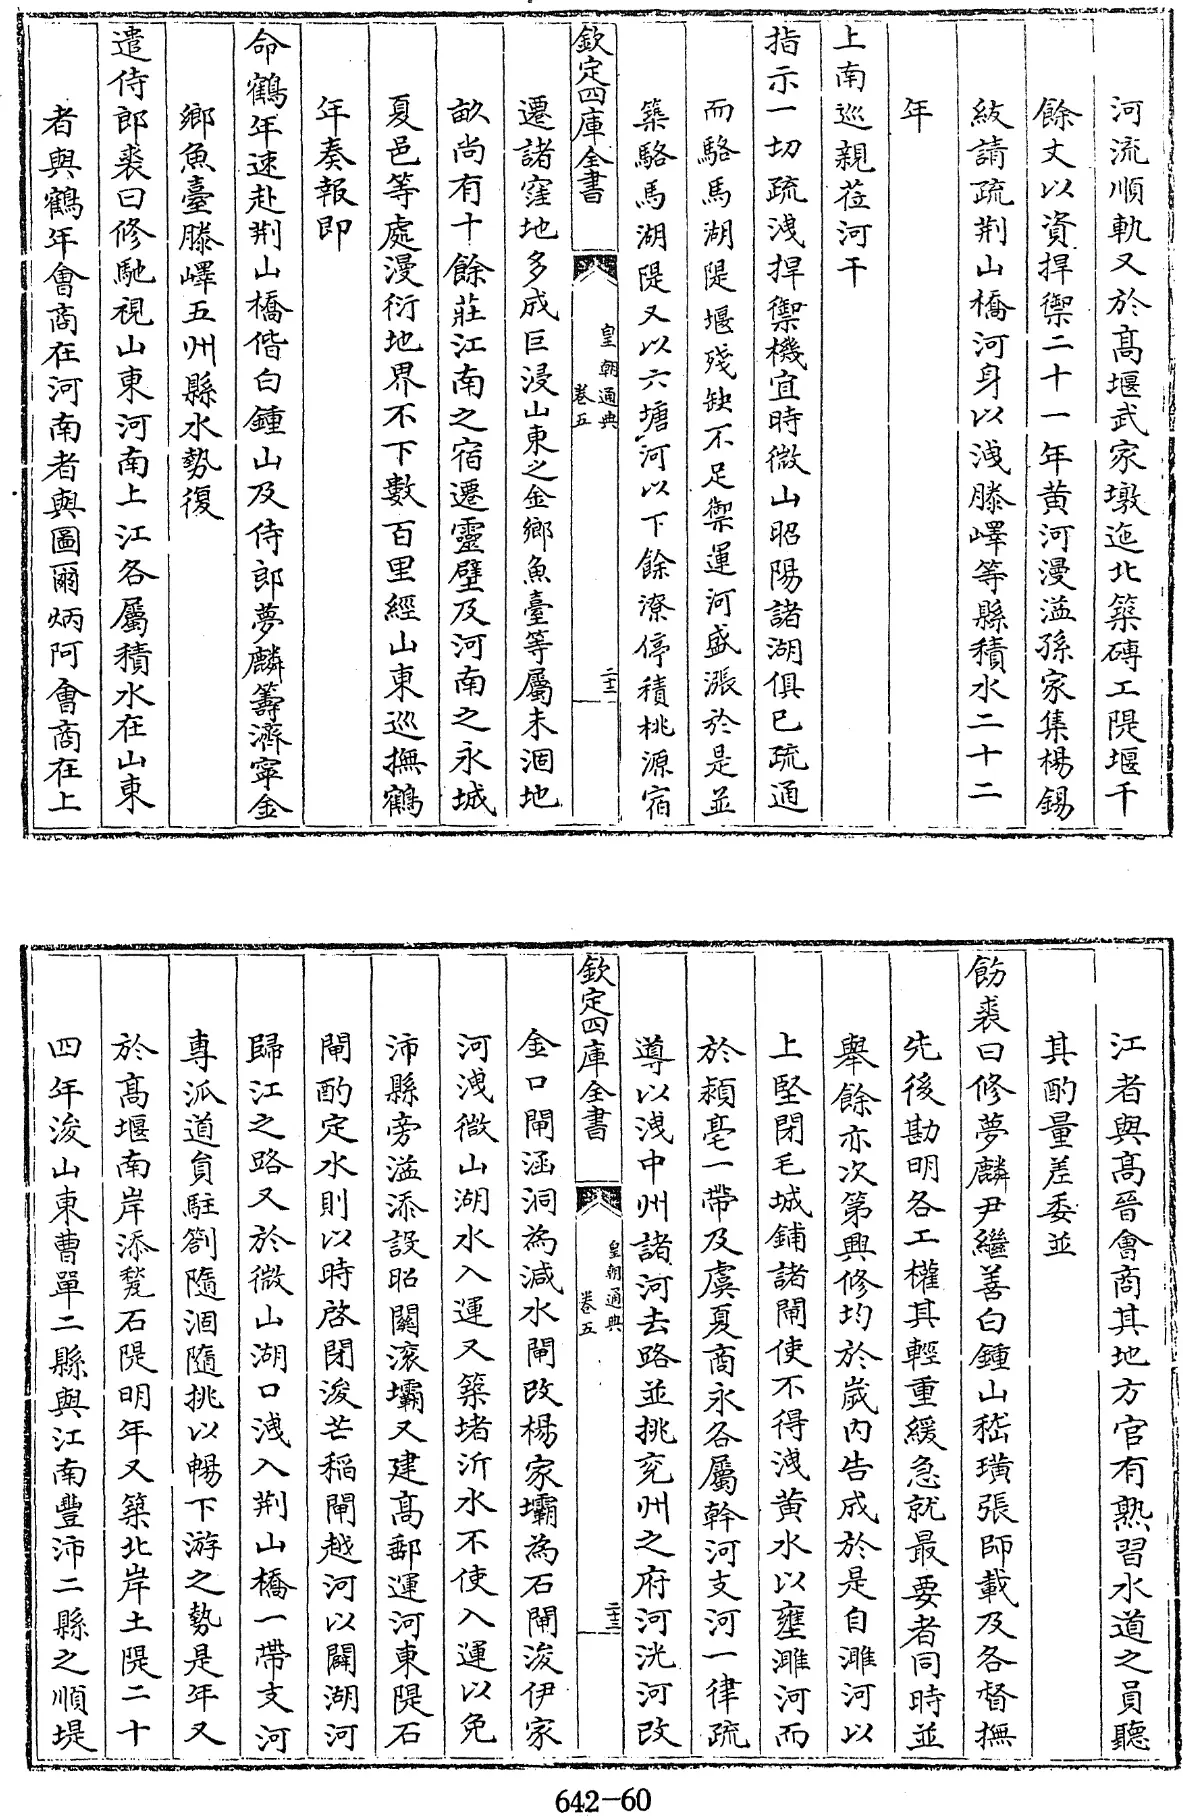 河流順軌又於高堰武家墩迤北築磚工隄堰千
餘丈以資捍禦二十一年黄河漫溢孫家集楊錫
紱請疏荆山橋河身以洩滕嶧等縣積水二十二
年
上南巡親莅河干
指示一切疏洩捍禦機宜時微山昭陽諸湖俱已疏通
而駱馬湖隄堰殘缺不足禦運河盛漲於是並
築駱馬湖隄又以六塘河以下餘潦停積桃源宿
欽定四庫全書
皇朝通典
卷五
二十二
遷諸窪地多成巨浸山東之金鄉魚臺等屬未涸地
畝尚有十餘莊江南之宿遷靈壁及河南之永城
夏邑等處漫衍地界不下數百里經山東巡撫鶴
年奏報即
命鶴年速赴荆山橋偕白鍾山及侍郎夢麟籌濟寧金
鄉魚臺滕嶧五州縣水勢復
遣侍郎裘曰修馳視山東河南上江各屬積水在山東
者與鶴年會商在河南者與圖爾炳阿會商在上
江者與高晉會商其地方官有熟習水道之員聽
其酌量差委並
飭裘曰修夢麟尹繼善白鍾山嵇璜張師載及各督撫
先後勘明各工權其輕重緩急就最要者同時並
舉餘亦次第興修均於歲内告成於是自濉河以
上堅閉毛城鋪諸閘使不得洩黄水以壅濉河而
於潁亳一帶及虞夏商永各屬幹河支河一律疏
導以洩中州諸河去路並挑兖州之府河洸河改
欽定四庫全書
皇朝通典
卷五
二十三
金口閘涵洞為減水閘改楊家壩為石閘浚伊家
河洩微山湖水入運又築堵沂水不使入運以免
沛縣旁溢添設昭關滚壩又建高郵運河東隄石
閘酌定水則以時啓閉浚芒稻閘越河以闢湖河
歸江之路又於微山湖口洩入荆山橋一帶支河
專派道員駐劄隨涸隨挑以暢下游之勢是年又
於高堰南岸添甃石隄明年又築北岸土隄二十
四年浚山東曹單二縣與江南豐沛二縣之順堤
642-60